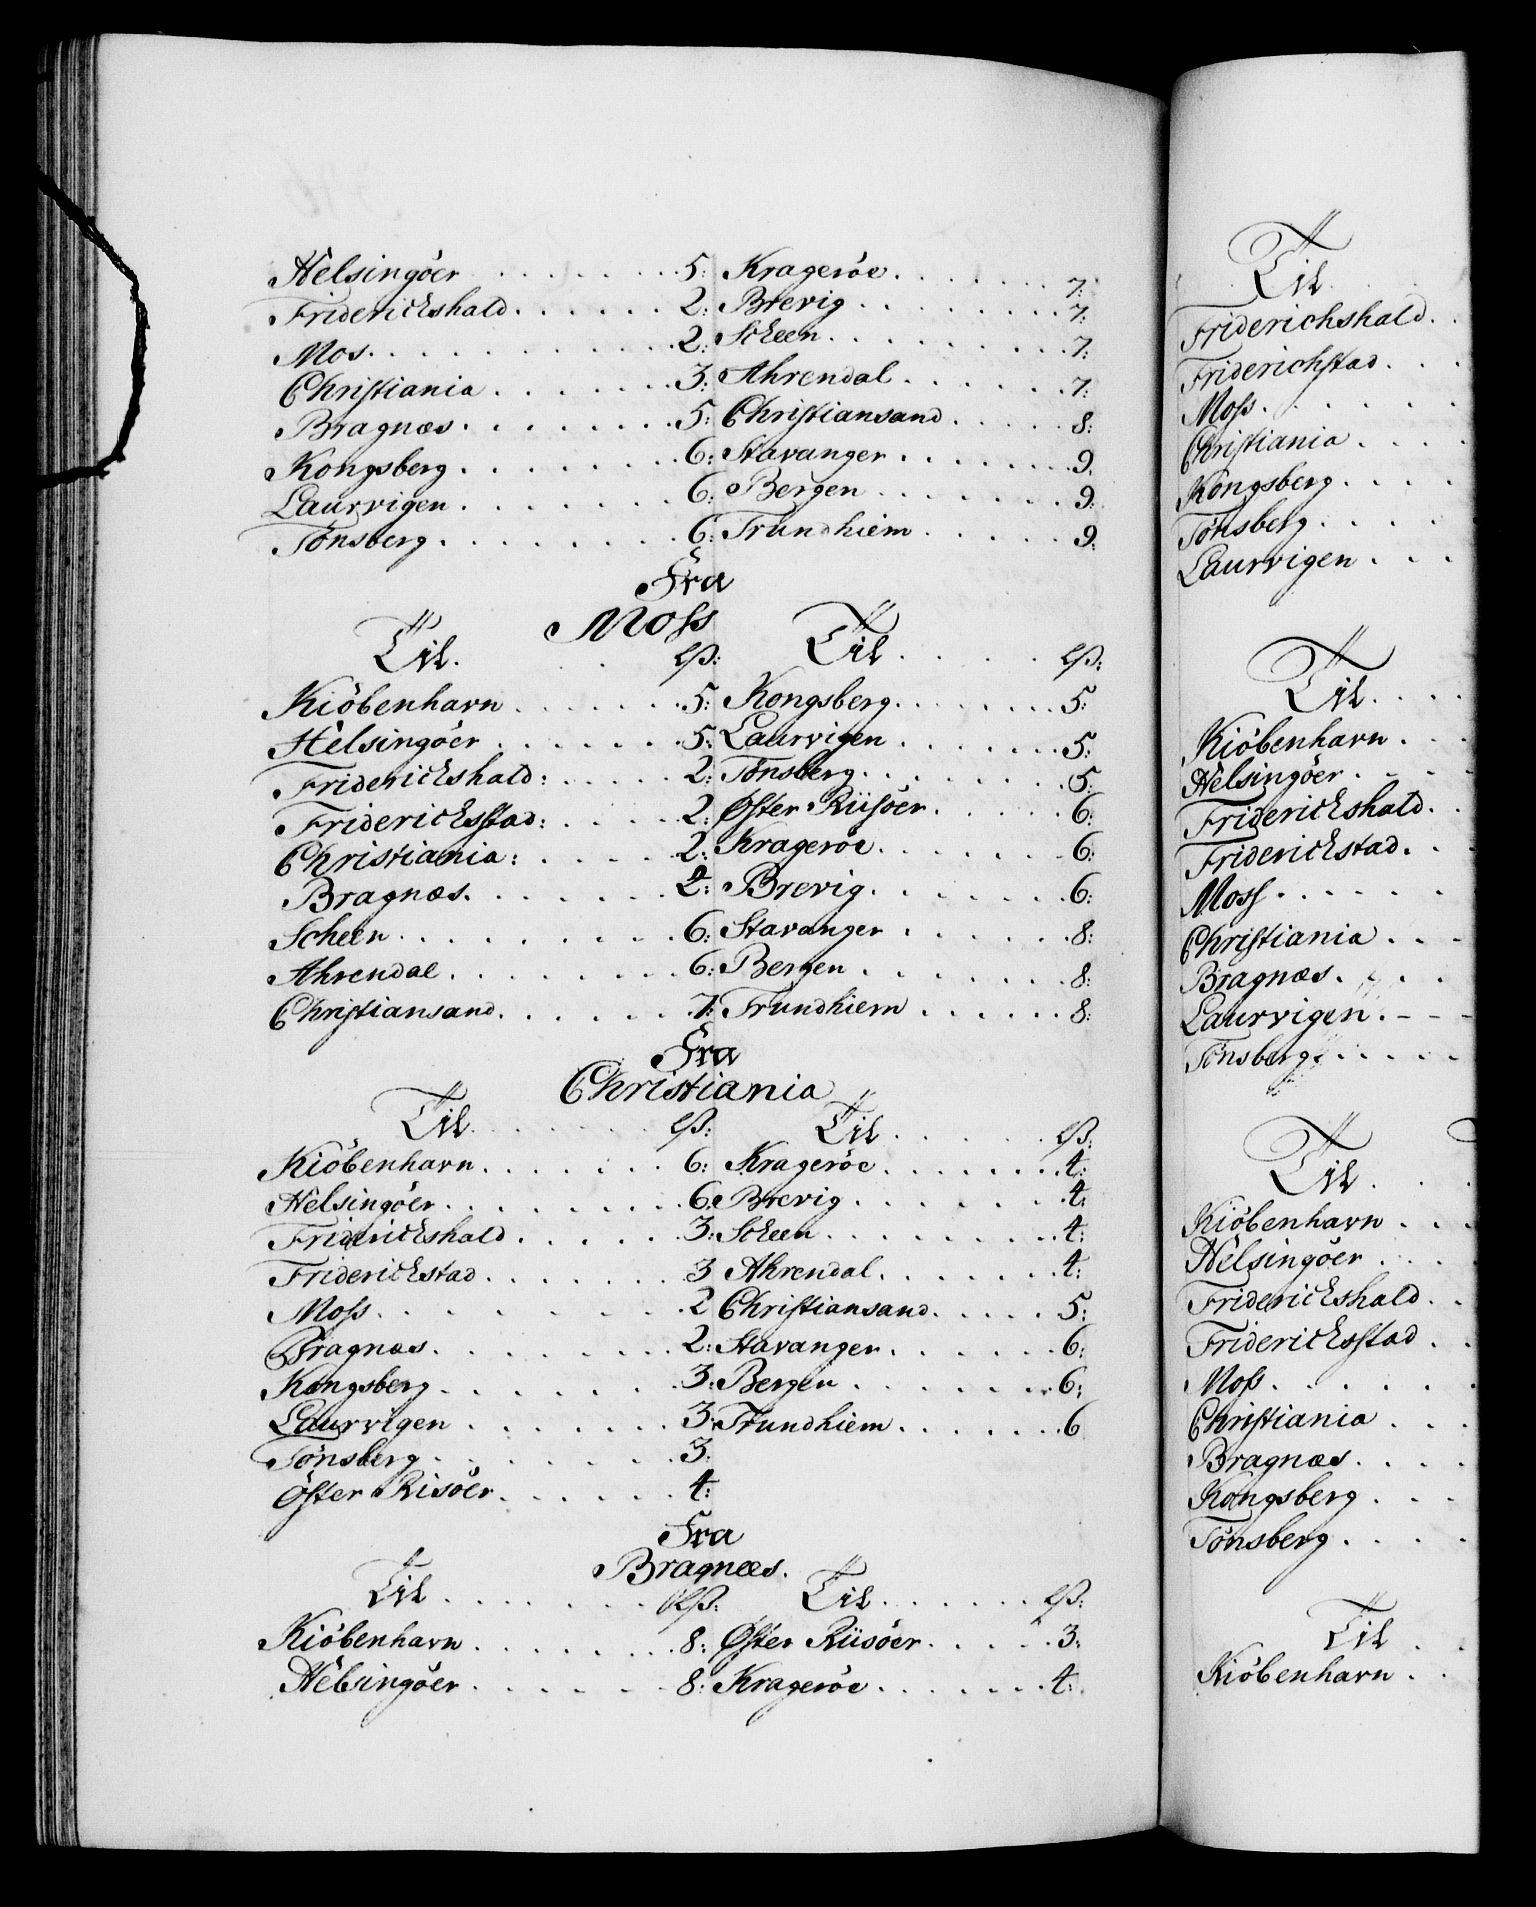 Helsingöer . . . . . . . 5: Krageröe . . . . . . . 7:
Friderichshald . . . . . . 2: Brevig . . . . . . . . 7:
Mos . . . . . . . . . . 2: Scheen . . . . . . . . 7:
Christiania . . . . . . . 3: Ahrendal . . . . . . . 7:
Bragnæs . . . . . . . . 5: Christiansand . . . . . 8:
Kongsberg . . . . . . . 6: Stavanger . . . . . . . 9.
Laurvigen . . . . . . . 6: Bergen . . . . . . . . 9:
Tönsberg . . . . . . . . 6: Trundhiem . . . . . . 9:
Fra
Moss
Til . . . lß: Til . . . . . lß:
Kiöbenhavn . . . . . . 5: Kongsberg . . . . . . . 5:
Helsingöer . . . . . . . 5: Laurvigen . . . . . . . 5:
Friderichshald: . . . . . 2: Tönsberg . . . . . . . 5:
Friderichsstad: . . . . . 2: Øster Riisöer . . . . . 6:
Christiania: . . . . . . 2: Kragerøe . . . . . . . 6:
Bragnæs . . . . . . . 2: Brevig . . . . . . . . 6:
Scheen . . . . . . . . . 6: Stavanger . . . . . . . 8:
Ahrendal . . . . . . . . 6: Bergen . . . . . . . . 8:
Christiansand . . . . . . 7: Trundhiem . . . . . . 8:
Fra
Christiania
Til . . . . . . lß: Til . . . . . lß:
Kiöbenhavn . . . . . . 6: Kragerøe . . . . . . . 4:
Helsingöer . . . . . . . 6: Brevig . . . . . . . . 4:
Friderichshald . . . . . 3: Scheen . . . . . . . . 4:
Friderichstad . . . . . . 3 Ahrendal . . . . . . . 4:
Moss . . . . . . . . . 2 Christiansand . . . . . 5:
Bragnæs . . . . . . . . 2: Stavanger . . . . . . . 6:
Kongsberg . . . . . . . 3: Bergen . . . . . . . . 6:
Laurvigen . . . . . . . 3: Trundhiem . . . . . . 6
Tönsberg . . . . . . . . 3:
Öster Risöer . . . . . . 4:
Fra
Bragnæs.
Til . . . . . . . lß: Til . . . . . . lß:
Kiöbenhavn . . . . . . 8: Øster Riisöer . . . . . 3:
Helsingöer . . . . . . . 8: Kragerøe . . . . . . . 4:
Til
Friderichshald . .
Friderichstad . . .
Moss . . . . . .
Christiania . . . .
Kongsberg . . . .
Tönsberg . . . . .
Laurvigen . . .
Til . . . .
Kiöbenhavn . . .
Helsingöer . . . .
Friderichshald . .
Friderichstad . .
Moss . . . . . .
Christiania . . .
Bragnæs . . . .
Laurvigen . - - -
Tönsberg . . . . .
Til . . .
Kiöbenhavn . . .
Helsingöer . . . .
Friderichshald . .
Friderichsstad . .
Moss . . . . . .
Christiania . . .
Bragnæs . . . .
Kongsberg . . .
Tönsberg . . . .
Til . .
Kiöbenhavn . .